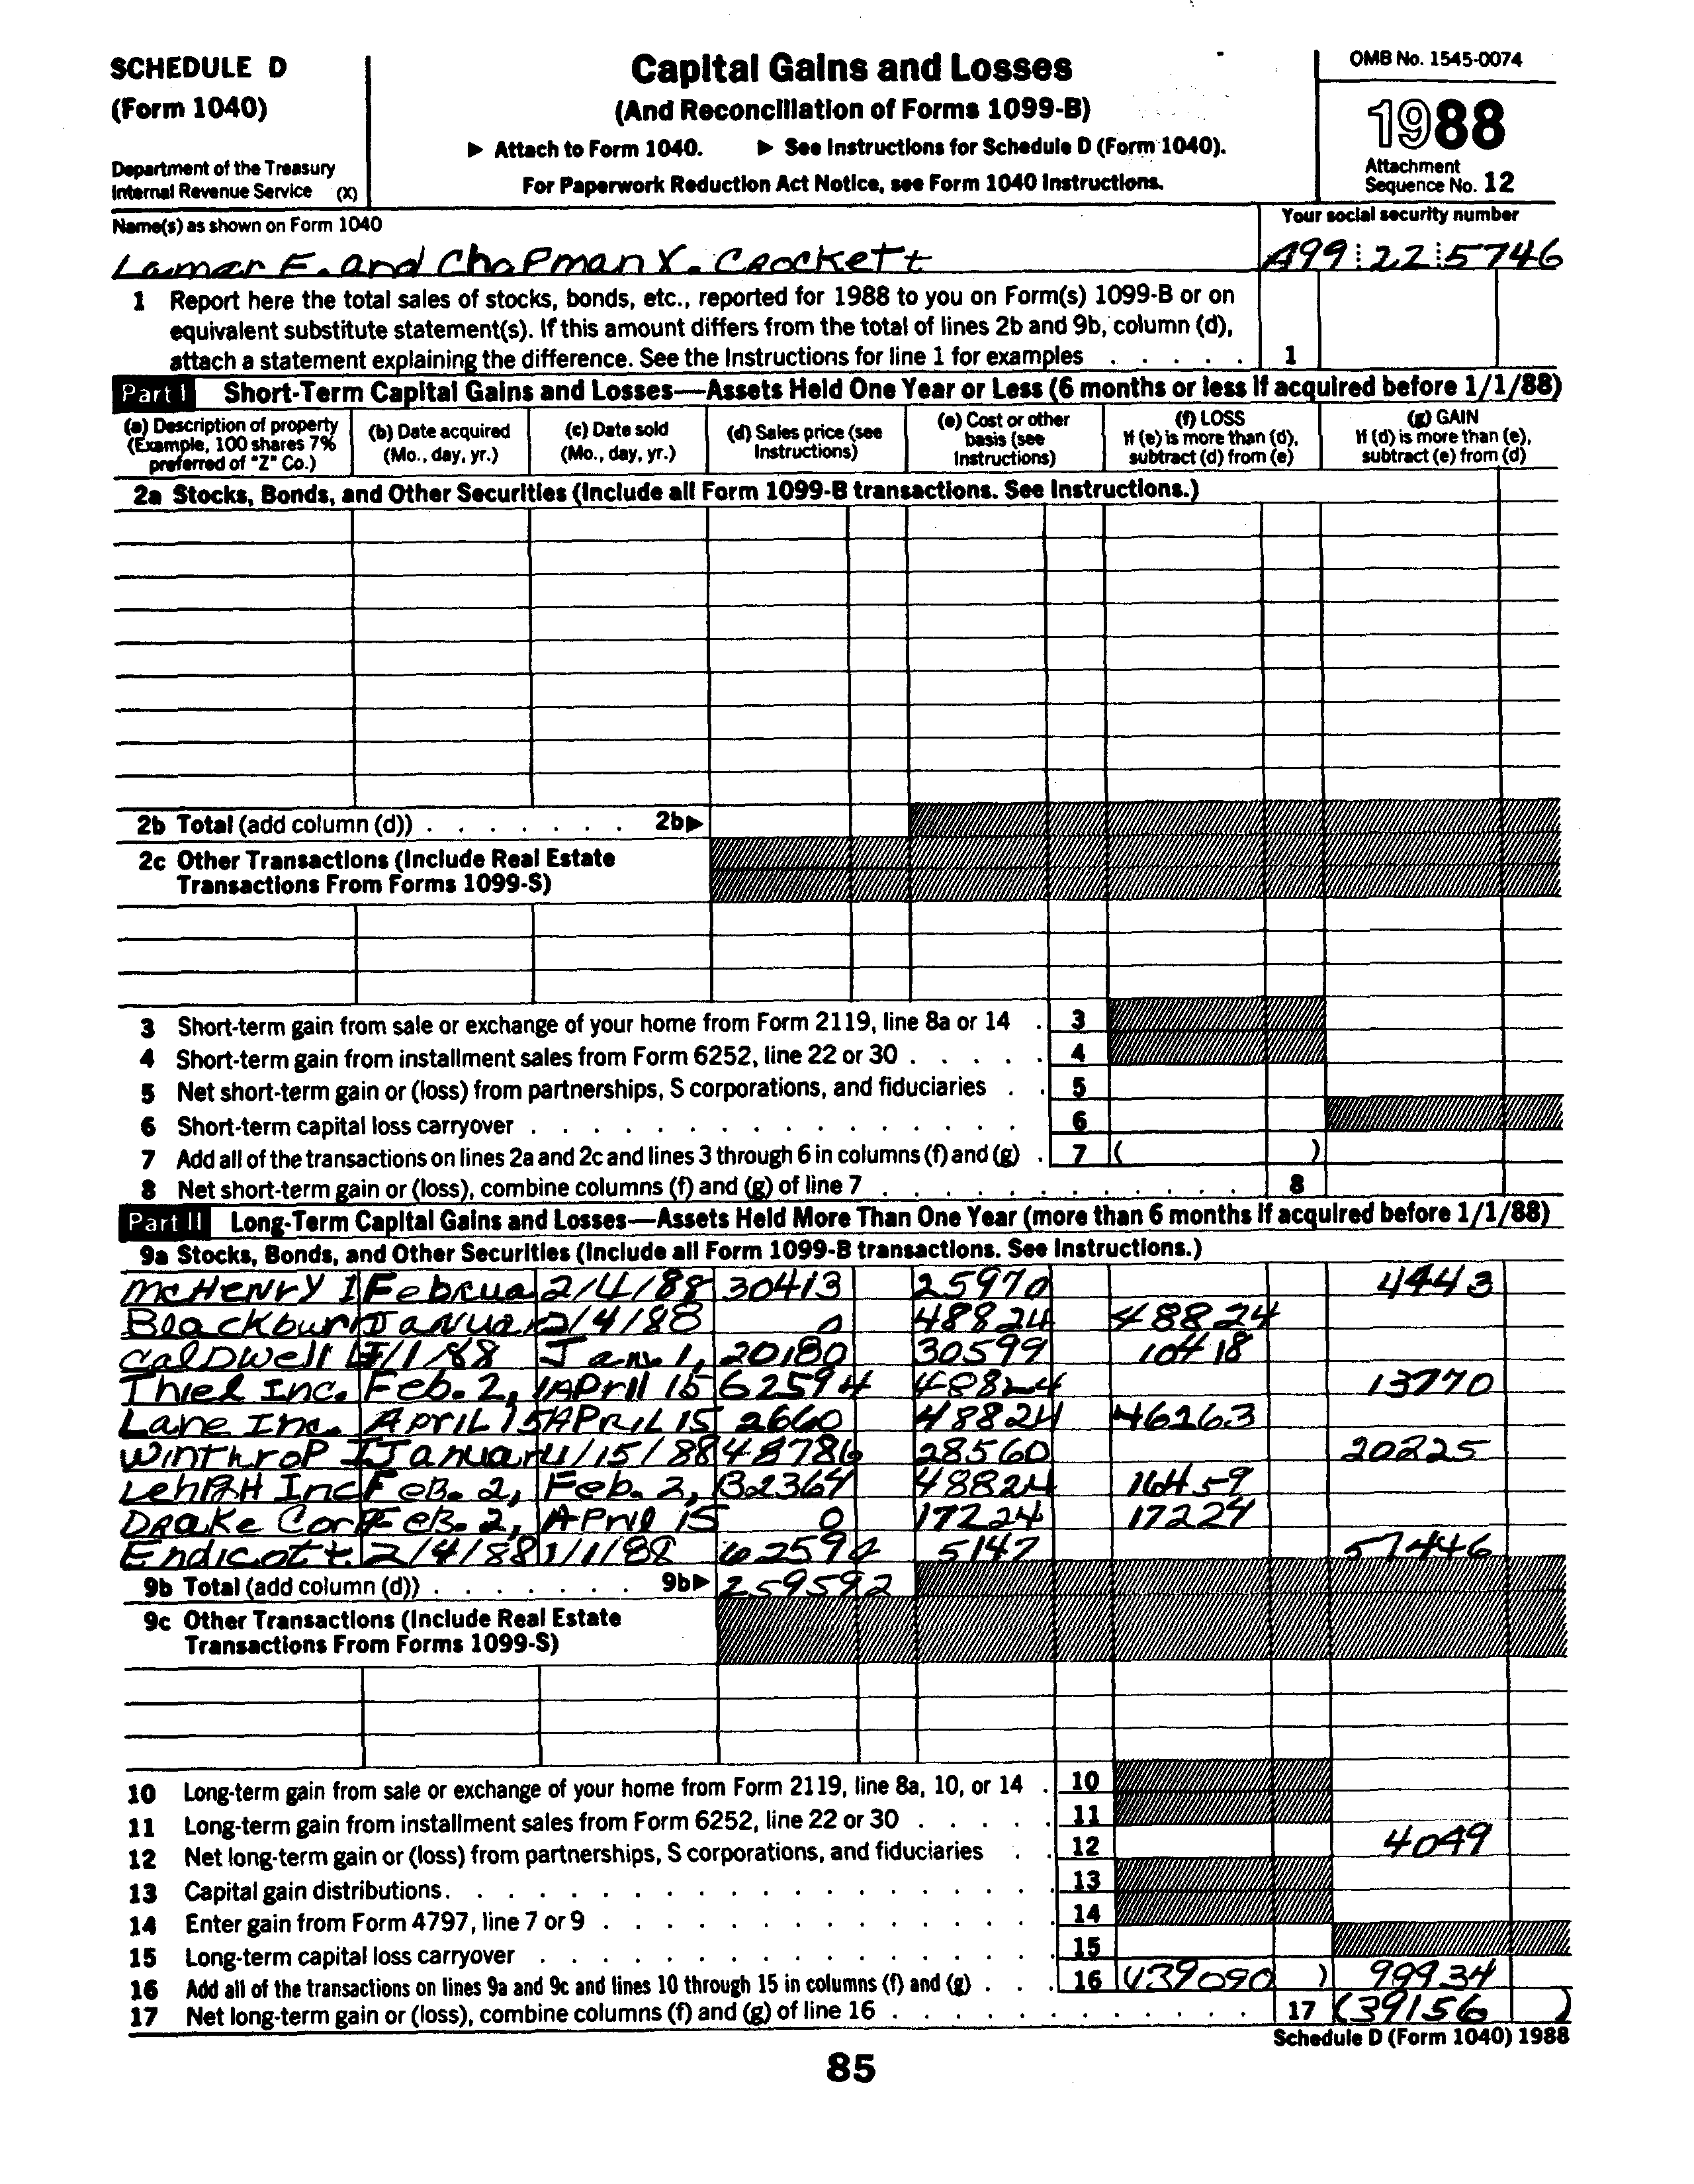 SCHEDULE D
(Form 1040)
Department of the Treasury
Internal Revenue Service (X)
Capital Gains and Losses
(And Reconciliation of Forms 1099-B)
▶ Attach to Form 1040. ▶ See Instructions for Schedule D (Form 1040).
For Paperwork Reduction Act Notice, see Form 1040 Instructions.
OMB No. 1545-0074
1988
Attachment
Sequence No. 12
Name(s) as shown on Form 1040
Your social security number
Lamar F. and Chapman X. Crockett A99 22 5746
1 Report here the total sales of stocks, bonds, etc., reported for 1988 to you on Form(s) 1099-B or on
equivalent substitute statement(s). If this amount differs from the total of lines 2b and 9b, column (d),
attach a statement explaining the difference. See the Instructions for line 1 for examples . . . . . 1
Part I Short-Term Capital Gains and Losses—Assets Held One Year or Less (6 months or less if acquired before 1/1/88)
(a) Description of property
(Example, 100 shares 7%
preferred of "Z" Co.)
(b) Date acquired
(Mo., day, yr.)
(c) Date sold
(Mo., day, yr.)
(d) Sales price (see
Instructions)
(e) Cost or other
basis (see
Instructions)
(f) LOSS
If (e) is more than (d),
subtract (d) from (e)
(g) GAIN
If (d) is more than (e),
subtract (e) from (d)
2a Stocks, Bonds, and Other Securities (Include all Form 1099-B transactions. See Instructions.)
2b Total (add column (d)) . . . . . . . 2b▶
2c Other Transactions (Include Real Estate
Transactions From Forms 1099-S)
3 Short-term gain from sale or exchange of your home from Form 2119, line 8a or 14 . 3
4 Short-term gain from installment sales from Form 6252, line 22 or 30 . . . . . 4
5 Net short-term gain or (loss) from partnerships, S corporations, and fiduciaries . . 5
6 Short-term capital loss carryover . . . . . . . . . . . . . . . 6
7 Add all of the transactions on lines 2a and 2c and lines 3 through 6 in columns (f) and (g) . 7 ( )
8 Net short-term gain or (loss), combine columns (f) and (g) of line 7 . . . . . . . . . . . 8
Part II Long-Term Capital Gains and Losses—Assets Held More Than One Year (more than 6 months if acquired before 1/1/88)
9a Stocks, Bonds, and Other Securities (Include all Form 1099-B transactions. See Instructions.)
McHenry I Februa 2/4/88 30413 25970 4443
Blackburn Januar 2/4/88 0 48824 48824
Caldwell 1/1/88 Jan. 1, 20180 30599 10418
Thiel Inc. Feb. 2, 1 April 15 62594 48824 13770
Lane Inc. April 15 April 15 2660 48824 46163
Winthrop I Januar 4/15/88 48786 28560 20225
Lehigh Inc Feb. 2, Feb. 2, 32364 48824 16459
Drake Cor Feb. 2, April 15 0 17224 17224
Endicott 2/4/88 1/1/88 62594 5147 57446
9b Total (add column (d)) . . . . . . . 9b▶ 259592
9c Other Transactions (Include Real Estate
Transactions From Forms 1099-S)
10 Long-term gain from sale or exchange of your home from Form 2119, line 8a, 10, or 14 . 10
11 Long-term gain from installment sales from Form 6252, line 22 or 30 . . . . . 11
12 Net long-term gain or (loss) from partnerships, S corporations, and fiduciaries . . 12 4049
13 Capital gain distributions . . . . . . . . . . . . . . . . . . 13
14 Enter gain from Form 4797, line 7 or 9 . . . . . . . . . . . . . 14
15 Long-term capital loss carryover . . . . . . . . . . . . . . . 15
16 Add all of the transactions on lines 9a and 9c and lines 10 through 15 in columns (f) and (g) . . . 16 (139090 ) 99934
17 Net long-term gain or (loss), combine columns (f) and (g) of line 16 . . . . . . . . . . . 17 (39156 )
Schedule D (Form 1040) 1988
85